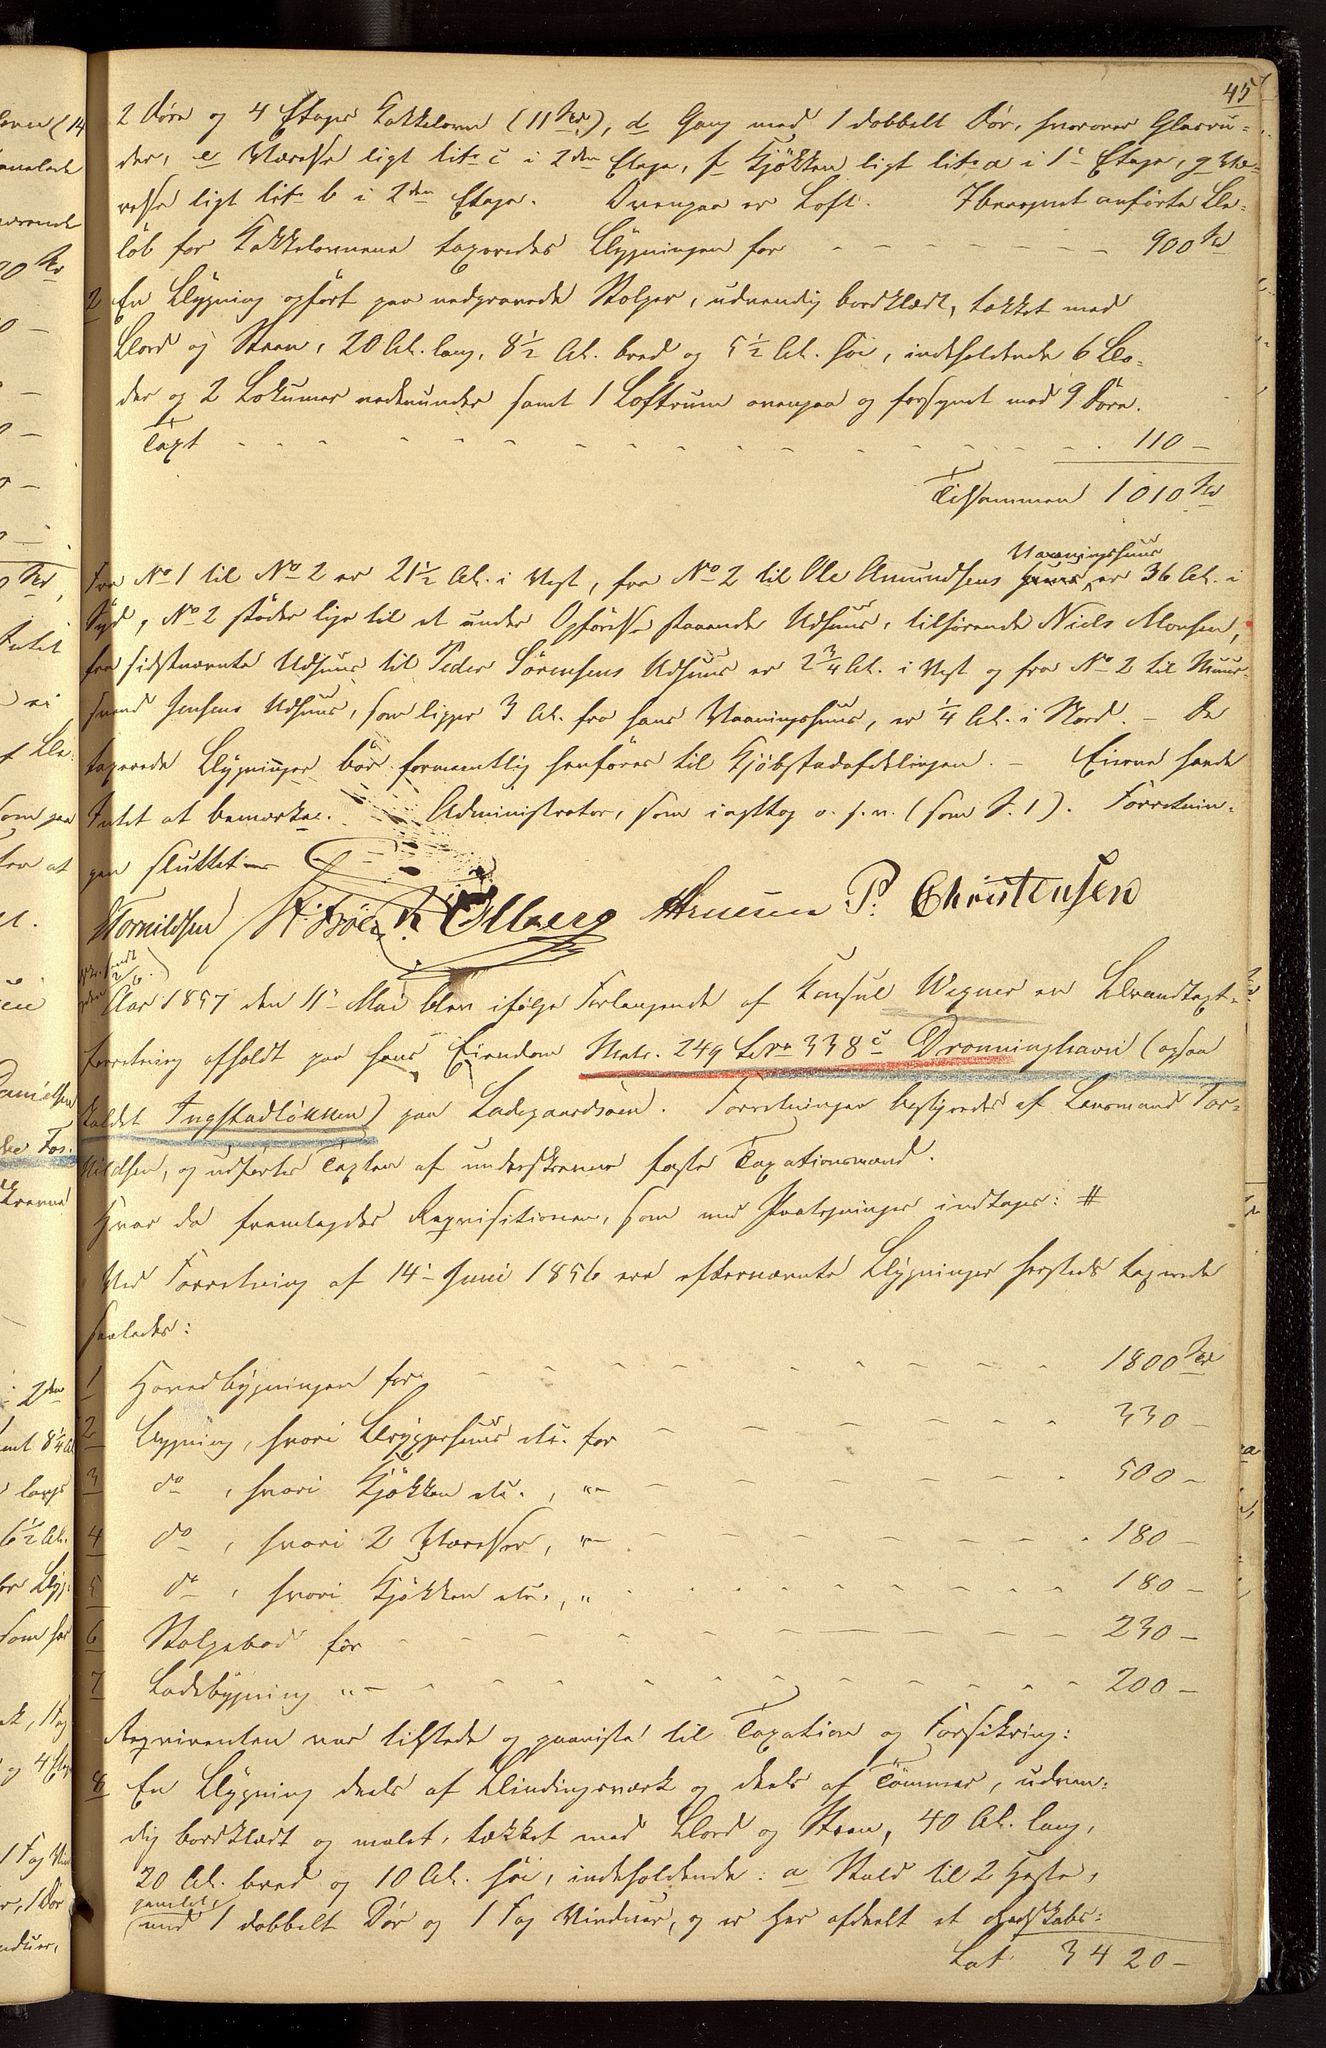 45
2 Döre og 4 Etages Kakkelovn (11 Spd), d Gang med 1 dobbelt Dör, hvorover Glasru-
der, e Værelse ligt litr c i 2den Etage, f Kjökken ligt litr a i 1e Etage, g Væ-
relse ligt litr b i 2den Etage. Ovenpaa er Loft. Iberegnet anförte Be-
löb for Kakkelovnene taxeredes Bygningen for 900 Spd
2 En Bygning opfört paa nedgravede Stolper, udvendig bordklædt, tækket med
Bord og Steen, 20 Al. lang, 8 1/2 Al. bred og 5 1/2 Al. höi, indeholdende 6 Bo-
der og 2 Lokumer nedenunder samt 1 Loftrum ovenpaa og forsynet med 9 Döre.
Taxt 110 –
Tilsammen 1010 Spd
Vaaningshuus
Fra No 1 til No 2 er 21 1/2 Al. i Vest, fra No 2 til Ole Amundsens huus er 36 Al. i
Syd, No 2 stöder lige til et under Opförelse staaende Udhuus, tilhörende Niels Monsen,
fra sidstnævnte Udhuus til Peder Sörensens Udhuus er 2 3/4 Al. i Vest og fra No 2 til Muur-
svend Jensens Udhuus, som ligger 3 Al. fra hans Vaaningshuus, er 1/4 Al. i Nord. – De
taxerede Bygninger bör formentlig henföres til Kjöbstadafdelingen. – Eierne havde
Intet at bemærke. Administrator, som iagttog o. s. v. (som S. 1). Forretnin-
gen sluttet
Tornildsen Elberg P. Christensen
Aar 1857 den 11e Mai blev ifölge Forlangende af Konsul Wegner en Brandtaxt-
forretning afholdt paa hans Eiendom Matr. 249 Lbno 338c Dronninghavn (ogsaa
kaldet Ingstadlökken) paa Ladegaardsöen. Forretningen bestyredes af Lensmand Tor-
nildsen, og udförtes Taxten af underskrevne faste Taxationsmænd.
Hvor da fremlagdes Reqvisitionen, som med Paategninger indtages: #
Ved Forretning af 14e Juni 1856 ere efternævnte Bygninger herstedts taxerede
saaledes:
1 Hovedbygningen for 1800 Spd
2 Bygning, hvori Bryggerhuus etc. for 330 –
3 do , hvori Kjökken etc., „– 500 –
4 do , hvori 2 Værelser, „– 180 –
5 do , hvori Kjökken etc., „ 180 –
6 Stolpebod for 230 –
7 Ladebygning „– 200 –
Reqvirenten var tilstede og paaviste til Taxation og Forsikring:
8 En Bygning deels af Bindingsværk og deels af Tömmer, udven-
dig bordklædt og malet, tækket med Bord og Steen, 40 Al. lang,
20 Al. bred og 10 Al. höi, indeholdende: a Stald til 2 Heste,
gamlet,
med 1 dobbelt Dör og 1 Fag Vinduer, og er her afdeelt et Redskabs:
Lat 3420 –